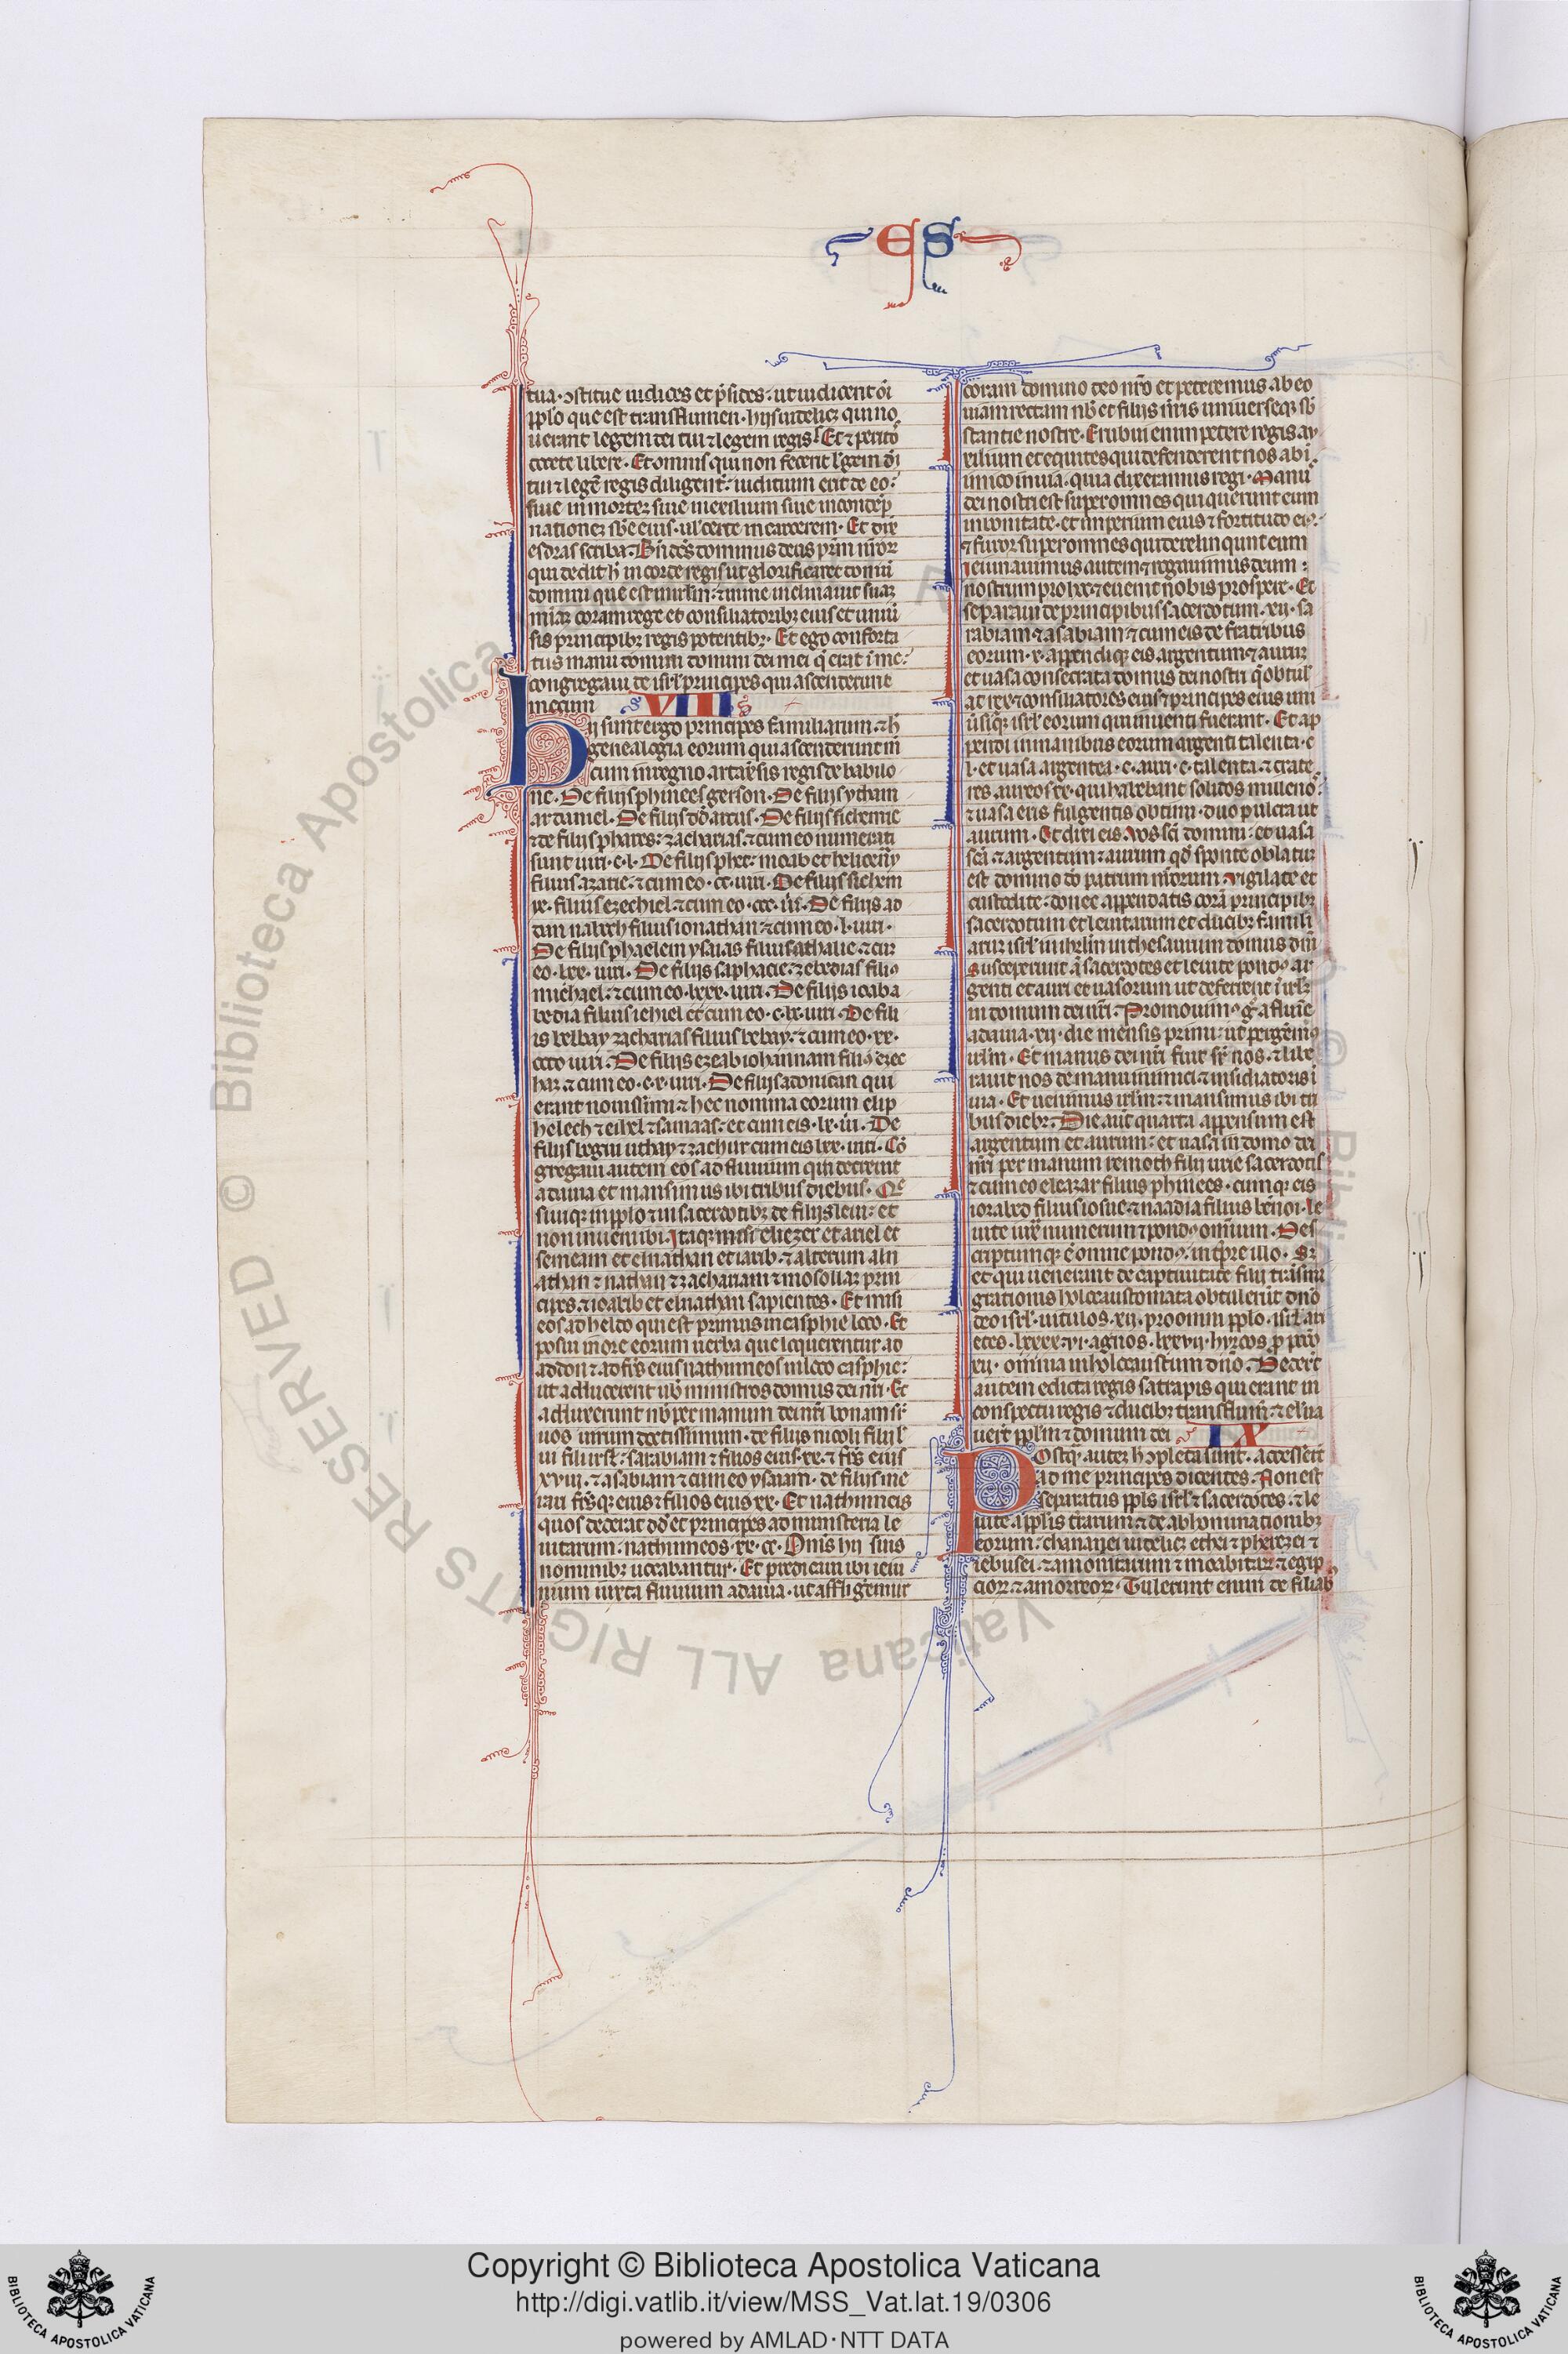 ES
tua· ꝯstitue iudices et p̄sides· ut iudicent oī
pp̄lo que est trans flumen· hijs uidelicꝫ qui no
uerant legem dei tui ⁊ legem regis· Et ⁊ perito
docete libere· Et omnis qui non fecerit l̄gem dī
tui ⁊ legē regis diligent̄· iudicium erit de eo·
siue in mortem siue in exilium siue in condep̄
nationeꝫ sb̄e eius· ul̄ certe in carcerem· Et dix̄
esdras scriba· Bn̄dc̄s dominus deus p̄rm nr̄oꝝ
qui dedit h̄ in corde regis ut glorificaret domū
domini que est in irl̄m· ⁊ in me inclinauit suaꝫ
mīaꝫ coram rege et consiliatoribꝫ eius et uniū
sis principibꝫ regis potentibꝫ· Et ego conforta
tus manu domini domini dei mei q̄ erat ī me·
congregaui de isrl̄ principes qui ascenderunt
mecum VIII
Hij sunt ergo principes familiarum· ⁊ h̄
genealogia eorum qui ascenderunt m̄
cum in regno artax̄sis regis de babilo
ne· De filijs phinees gerson· De filijs ytham
ar daniel· De filijs dd̄ arcus· De filijs sichenie
⁊ de filijs phares· zacharias· ⁊ cum eo numerati
sunt uiri· c·l· De filijs phet· moab et helioeny
filius azarie· ⁊ cum eo· cc· uiri· De filijs sichem
ie· filius ezechiel· ⁊ cum eo· ccc· uiri· De filijs ad
dan nabeth filius ionathan ⁊ cum eo· l· uiri·
De filijs phaelem ysaias filius athalie· ⁊ cū
eo· lxx· uiri· De filijs saphacie· zebedias filiꝰ
michael· ⁊ cum eo· lxxx· uiri· De filijs ioaba
bedia filius iehiel et cum eo· c·lx· uiri· De fili
is belbay zacharias filius bebay· ⁊ cum eo· xx·
octo uiri· De filijs ezeab iohannam filiꝰ ezec
har ⁊ cum eo· c·x· uiri· De filijs adonican qui
erant nouissimi ⁊ hec nomina eorum elip
helech ⁊ eihel ⁊ samaas· et cum eis· lx· uī· De
filijs begui uthay ⁊ zachur cum eis lxx· uiri· Cō
gregaui autem eos ad fluuium qui decurrit
adaua et mansimus ibi tribus diebus· Qe
siuiqꝫ in pp̄lo ⁊ in sacerdotibꝫ de filijs leui· et
non inueni ibi· Itaqꝫ misi eliezer et ariel et
semeam et elnathan et iarib· ⁊ alterum aln
athan ⁊ nathan ⁊ zachariam ⁊ mosollaꝫ prin
cipes ⁊ ioarib et elnathan sapientes· Et misi
eos ad heldo qui est primus in casphie loco· Et
posui in ore eorum uerba que loquerentur ad
addon ⁊ ad fr̄s eius nathinneos in loco casphie·
ut adducerent nb̄ ministros domus dei nr̄i· Et
adduxerunt nb̄ per manum dei nr̄i bonam sr̄
uos uirum doctissimum· de filijs nicoli filij l̄
ui filij isrl̄· sarabiam ⁊ filios eius· xx· ⁊ fr̄s eius
xviij· ⁊ asabiam ⁊ cum eo ysaiam· de filijs me
rari fr̄sqꝫ eius ⁊ filios eius xx· Et nathinneis
quos dederat dd̄ et principes ad ministeria le
uitarum· nathinneos· xx· cc· Omīs hij suis
nominibꝫ uocabantur· Et predicaui ibi ieiu
nium iuxta fluuium adaua· ut affligemur
coram domino deo nr̄o et peteremus ab eo
uiam rectam nb̄ et filijs nr̄is uniuerseqꝫ sb̄
stantie nostre· Erubui enim petere regis au
xilium et equites qui defenderent nos ab ī
inico in uia· quia dixeramus regi· Manu
dei nostri est super omnes qui querunt eum
in bonitate· et imperium eius ⁊ fortitudo eiꝰ·
⁊ furor super omnes qui derelinqunt eum
ieiunauimus autem ⁊ rogauimus deum·
nostrum pro hoc· ⁊ euenit nobis prospere· Et
separaui de principibus sacerdotum· xij· sa
rabiam ⁊ asabiam ⁊ cum eis de fratribus
eorum· x· appendiqꝫ eis argentum ⁊ aurum
et uasa consecrata domus dei nostri q̄ obtul̄
at rex ⁊ consiliatores eius ⁊ principes eius uni
ūsiqꝫ isrl̄ eorum qui inuenti fuerant· Et ap
pendi in manibus eorum argenti talenta· c
l· et uasa argentea· c· auri· c· talenta· ⁊ crate
res aureos xx· qui habebant solidos milleno·
⁊ uasa eris fulgentis obtimi· duo pulcra ut
aurum· Et dixi eis· Vos sc̄i domini· et uasa
sc̄a· ⁊ argentum ⁊ aurum qd̄ sponte oblatuꝫ
est domino do patrum nr̄orum· Vigilate et
custodite· donec appendatis corā principibꝫ
sacerdotum et leuitarum et ducibꝫ famili
arum isrl̄ in ihrl̄m in thesaurum domus dn̄i
Susceperunt aū sacerdotes et leuite pondꝰ ar
genti et auri et uasorum ut deferrent ī irl̄m
in domum dei nr̄i· Promouimꝰ g̊ a flum̄e
adaua· xij· die mensis primi· ut pergem̄ꝰ
irl̄m· Et manus dei nr̄i fuit sr̄ nos· ⁊ libe
rauit nos de manu inimici ⁊ insidiatoris ī
uia· Et uenimus irl̄m· ⁊ mansimus ibi tri
bus diebꝫ· Die aūt quarta appensum est
argentum et aurum· et uasa in domo dei
nr̄i per manum remoth filij urie sacerdotis
⁊ cum eo eleazar filius phinees· cumqꝫ eis
iozabed filius iosue· ⁊ naadia filius benoi· le
uite iux̄ numerum ⁊ pondꝰ omnium· Des
criptumqꝫ ē omne pondꝰ· in tp̄re illo· Sꝫ
et qui uenerunt de captiuitate filij trāsmi
grationis holocaustomata obtulerūt dn̄o
deo isrl̄· uitulos· xij· pro omni pp̄lo· isrl̄· ari
etes· lxxxx·vi· agnos· lxxvij· hyrcos p̄ pcc̄o
xij· omnia in holocaustum dn̄o· Dederūt
autem edicta regis satrapis qui erant in
conspectu regis ⁊ ducibꝫ trans flum̄· ⁊ eleua
uerūt pp̄lm ⁊ domum dei IX
Postq̄ꝫ autem h̄ ꝯpleta sunt· accesserūt
ad me principes dicentes· Non est
separatus pp̄ls isrl̄ ⁊ sacerdotes· ⁊ le
uite· a pp̄lis t̄rarum ⁊ de abhominationibꝫ
eorum· chananei uidelicꝫ ethei ⁊ pherezei ⁊
iebusei· ⁊ amonitarum ⁊ moabitaꝝ ⁊ egip
cioꝝ ⁊ amorreoꝝ· Tulerunt enim de filiabꝫ
Copyright © Biblioteca Apostolica Vaticana
http://digi.vatlib.it/view/MSS_Vat.lat.19/0306
powered by AMLAD·NTT DATA
BIBLIOTECA APOSTOLICA VATICANA
BIBLIOTECA APOSTOLICA VATICANA
© Biblioteca Apostolica Vaticana ALL RIGHTS RESERVED